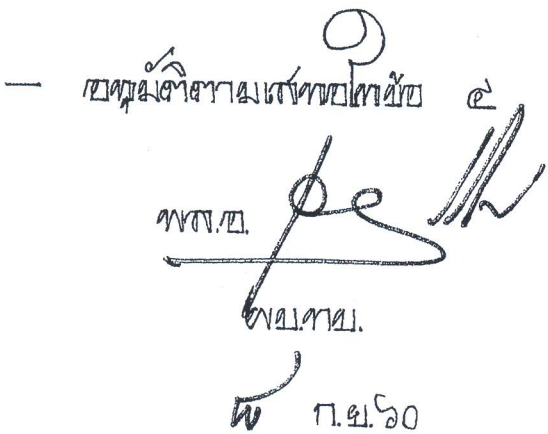 - อนุมัติตามเสนอในข้อ ๕
พล.อ.
ผบ.ทบ.
ก.ย.๖๐